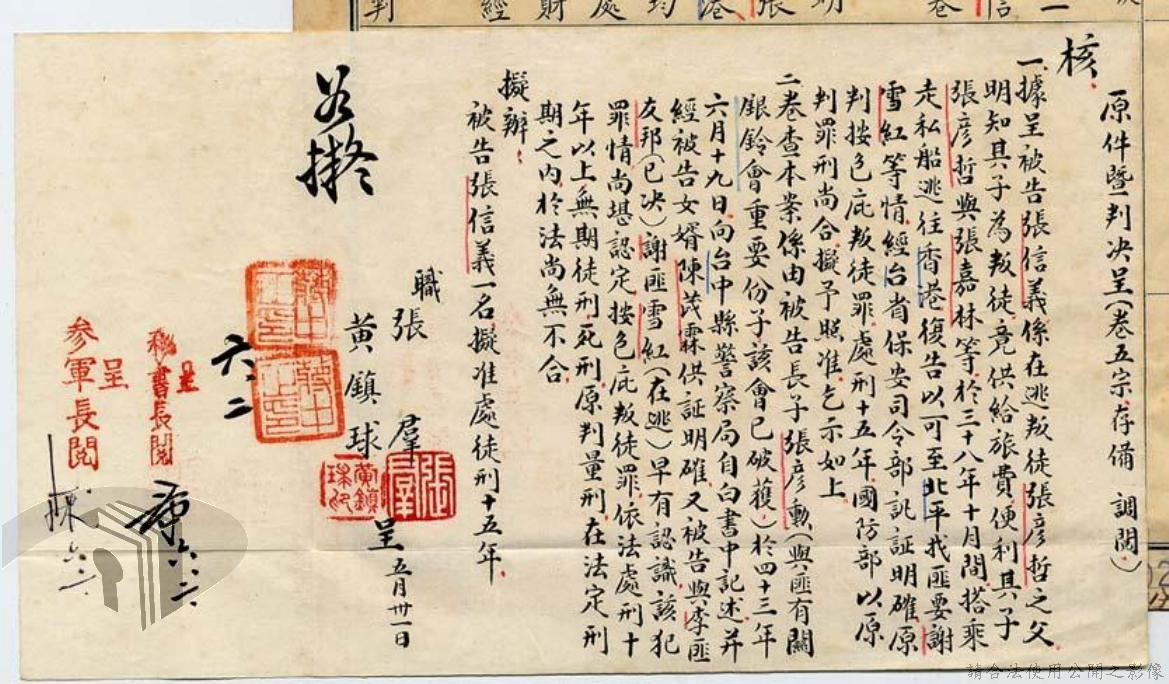 核、
原件暨判决呈(卷五宗、存備 調閱、)
一、據呈被告張信義、係在逃叛徒張彥哲之父、
明知其子為叛徒、竟供給旅費便利其子
張彥哲與張嘉林等於三十八年十月間、搭乘
走私船逃往香港、復告以可至北平找匪要謝
雪紅等情、經台省保安司令部訊証明確、原
判按包庇叛徒罪、處刑十五年、國防部以原
判罪刑尚合、擬予照准、乞示如上、
二、卷查本案係由被告長子張彥勳(與匪有關
銀鈴會重要份子該會已破獲)於四十三年
六月十九日、向台中縣警察局自白書中記述、并
經被告女婿陳茂霖供証明確、又被告與李匪
友邦(已决)謝匪雪紅(在逃)早有認識、該犯
罪情、尚堪認定、按包庇叛徒罪、依法處刑十
年以上無期徒刑、死刑、原判量刑、在法定刑
期之內、於法尚無不合、
擬辦、
被告張信義一名、擬准處徒刑十五年、
職 張 羣
黃鎮球 呈 五月卅一日
張羣
黃鎮球印
如擬
六、二
呈
秘書長閱
六、二、
呈
參軍長閱
六、二、
請合法使用公開之影像